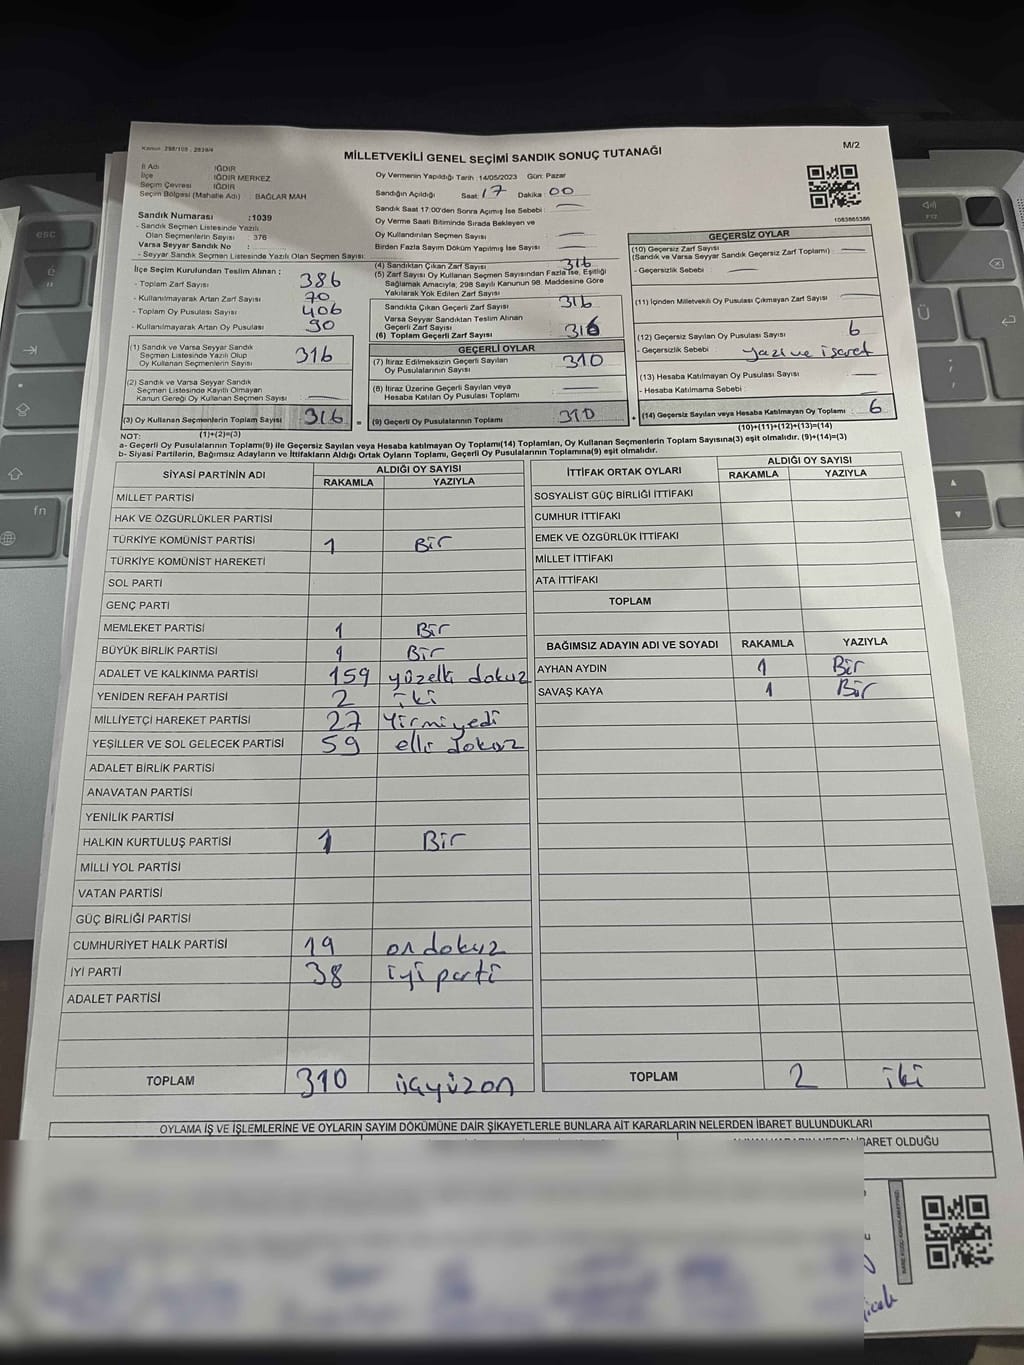 Kanun: 298/105 , 2839/4
MİLLETVEKİLİ GENEL SEÇİMİ SANDIK SONUÇ TUTANAĞI
M/2
İl Adı : IĞDIR
İlçe : IĞDIR MERKEZ
Seçim Çevresi : IĞDIR
Seçim Bölgesi (Mahalle Adı) : BAĞLAR MAH
Sandık Numarası :1039
- Sandık Seçmen Listesinde Yazılı
Olan Seçmenlerin Sayısı : 376
Varsa Seyyar Sandık No :
- Seyyar Sandık Seçmen Listesinde Yazılı Olan Seçmen Sayısı:
İlçe Seçim Kurulundan Teslim Alınan ;
- Toplam Zarf Sayısı 386
- Kullanılmayarak Artan Zarf Sayısı 70
- Toplam Oy Pusulası 406
- Kullanılmayarak Artan Oy Pusulası 90
(1) Sandık ve Varsa Seyyar Sandık
Seçmen Listesinde Yazılı Olup
Oy Kullanan Seçmenlerin Sayısı 316
(2) Sandık ve Varsa Seyyar Sandık
Seçmen Listesinde Kayıtlı Olmayan
Kanun Gereği Oy Kullanan Seçmen Sayısı —
(3) Oy Kullanan Seçmenlerin Toplam Sayısı 316
(1)+(2)=(3)
Oy Vermenin Yapıldığı Tarih :14/05/2023 Gün: Pazar
Sandığın Açıldığı Saat: 17 Dakika: 00
Sandık Saat 17:00'den Sonra Açılmış İse Sebebi : —
Oy Verme Saati Bitiminde Sırada Bekleyen ve
Oy Kullandırılan Seçmen Sayısı —
Birden Fazla Sayım Döküm Yapılmış İse Sayısı —
(4) Sandıktan Çıkan Zarf Sayısı 316
(5) Zarf Sayısı Oy Kullanan Seçmen Sayısından Fazla İse, Eşitliği
Sağlamak Amacıyla, 298 Sayılı Kanunun 98. Maddesine Göre
Yakılarak Yok Edilen Zarf Sayısı
Sandıkta Çıkan Geçerli Zarf Sayısı 316
Varsa Seyyar Sandıktan Teslim Alınan
Geçerli Zarf Sayısı
(6) Toplam Geçerli Zarf Sayısı 316
GEÇERLİ OYLAR
(7) İtiraz Edilmeksizin Geçerli Sayılan
Oy Pusulalarının Sayısı 310
(8) İtiraz Üzerine Geçerli Sayılan veya
Hesaba Katılan Oy Pusulası Toplamı —
(9) Geçerli Oy Pusulalarının Toplamı 310
1083865386
GEÇERSİZ OYLAR
(10) Geçersiz Zarf Sayısı
(Sandık ve Varsa Seyyar Sandık Geçersiz Zarf Toplamı) : —
- Geçersizlik Sebebi : —
(11) İçinden Milletvekili Oy Pusulası Çıkmayan Zarf Sayısı —
(12) Geçersiz Sayılan Oy Pusulası Sayısı 6
- Geçersizlik Sebebi : yazı ve işaret
(13) Hesaba Katılmayan Oy Pusulası Sayısı —
- Hesaba Katılmama Sebebi : —
(14) Geçersiz Sayılan veya Hesaba Katılmayan Oy Toplamı : 6
(10)+(11)+(12)+(13)=(14)
NOT:
a- Geçerli Oy Pusulalarının Toplamı(9) ile Geçersiz Sayılan veya Hesaba katılmayan Oy Toplamı(14) Toplamları, Oy Kullanan Seçmenlerin Toplam Sayısına(3) eşit olmalıdır. (9)+(14)=(3)
b- Siyasi Partilerin, Bağımsız Adayların ve İttifakların Aldığı Oyların Toplamı, Geçerli Oy Pusulalarının Toplamına(9) eşit olmalıdır.
SİYASİ PARTİNİN ADI ALDIĞI OY SAYISI
RAKAMLA YAZIYLA
MİLLET PARTİSİ
HAK VE ÖZGÜRLÜKLER PARTİSİ
TÜRKİYE KOMÜNİST PARTİSİ 1 Bir
TÜRKİYE KOMÜNİST HAREKETİ
SOL PARTİ
GENÇ PARTİ
MEMLEKET PARTİSİ 1 Bir
BÜYÜK BİRLİK PARTİSİ 1 Bir
ADALET VE KALKINMA PARTİSİ 159 yüzelli dokuz
YENİDEN REFAH PARTİSİ 2 iki
MİLLİYETÇİ HAREKET PARTİSİ 27 Yirmiyedi
YEŞİLLER VE SOL GELECEK PARTİSİ 59 elli dokuz
ADALET BİRLİK PARTİSİ
ANAVATAN PARTİSİ
YENİLİK PARTİSİ
HALKIN KURTULUŞ PARTİSİ 1 Bir
MİLLİ YOL PARTİSİ
VATAN PARTİSİ
GÜÇ BİRLİĞİ PARTİSİ
CUMHURİYET HALK PARTİSİ 19 on dokuz
İYİ PARTİ 38 iyi parti
ADALET PARTİSİ
TOPLAM 310 üçyüzon
İTTİFAK ORTAK OYLARI ALDIĞI OY SAYISI
RAKAMLA YAZIYLA
SOSYALİST GÜÇ BİRLİĞİ İTTİFAKI
CUMHUR İTTİFAKI
EMEK VE ÖZGÜRLÜK İTTİFAKI
MİLLET İTTİFAKI
ATA İTTİFAKI
TOPLAM
BAĞIMSIZ ADAYIN ADI VE SOYADI RAKAMLA YAZIYLA
AYHAN AYDIN 1 Bir
SAVAŞ KAYA 1 Bir
TOPLAM 2 iki
OYLAMA İŞ VE İŞLEMLERİNE VE OYLARIN SAYIM DÖKÜMÜNE DAİR ŞİKAYETLERLE BUNLARA AİT KARARLARIN NELERDEN İBARET BULUNDUKLARI
BARET OLDUĞU
esc
fn
F12